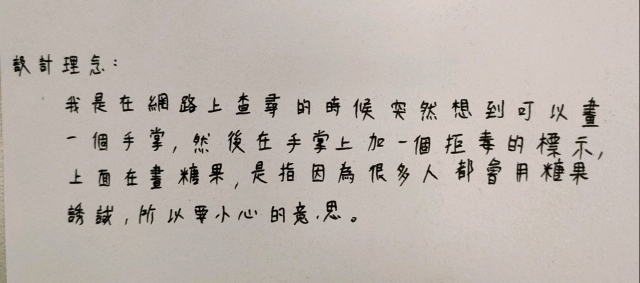 設計理念：
我是在網路上查尋的時候突然想到可以畫
一個手掌,然後在手掌上加一個拒毒的標示,
上面在畫糖果,是指因為很多人都會用糖果
誘誠,所以要小心的意思。